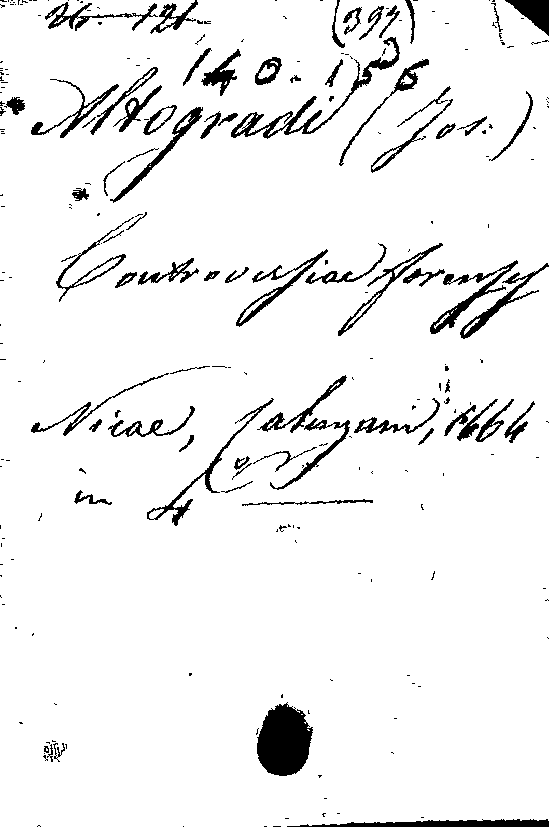 26-121
(397)
140.156
Altogradi (Jos.)
Controversiae forenses
Nicae, 1664
in 4